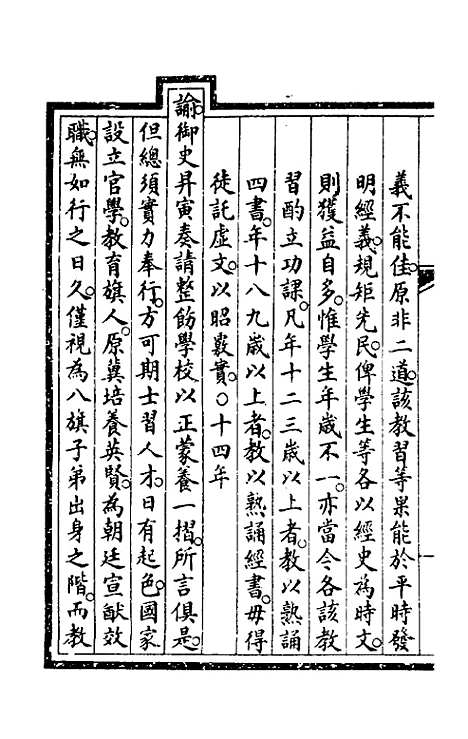 義不能佳。原非二道。該教習等果能於平時發
明經義。規矩先民。俾學生等各以經史為時文。
則獲益自多。惟學生年歲不一。亦當令各該教
習酌立功課。凡年十二三歲以上者。教以熟誦
四書。年十八九歲以上者。教以熟誦經書。毋得
徒託虛文。以昭覈實。○十四年
諭。御史昇寅奏請整飭學校以正蒙養一摺。所言俱是。
但總須實力奉行。方可期士習人才。日有起色。國家
設立官學。教育旗人。原冀培養英賢。為朝廷宣猷效
職。無如行之日久。僅視為八旗子弟出身之階。而教